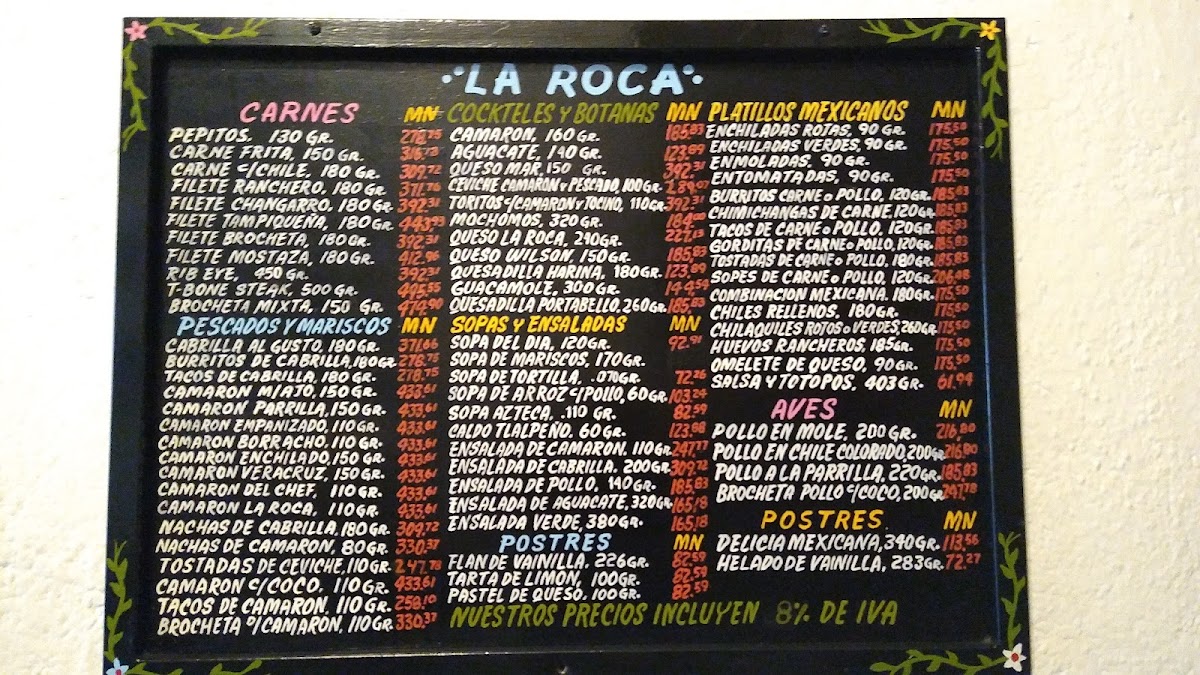 LA ROCA
CARNES MN
PEPITOS. 130 GR. 278.75
CARNE FRITA, 150 GR. 316.73
CARNE C/CHILE, 180 GR. 309.72
FILETE RANCHERO, 180 GR. 371.76
FILETE CHANGARRO, 180 GR. 392.31
FILETE TAMPIQUEÑA, 180 GR. 443.93
FILETE BROCHETA, 180 GR. 392.31
FILETE MOSTAZA, 180 GR. 412.96
RIB EYE, 450 GR. 392.31
T-BONE STEAK, 500 GR. 495.55
BROCHETA MIXTA, 150 GR. 479.90
PESCADOS Y MARISCOS MN
CABRILLA AL GUSTO, 180 GR. 371.66
BURRITOS DE CABRILLA, 180 GR. 278.75
TACOS DE CABRILLA, 180 GR. 278.75
CAMARON M/AJO, 150 GR. 433.61
CAMARON PARRILLA, 150 GR. 433.61
CAMARON EMPANIZADO, 110 GR. 433.61
CAMARON BORRACHO, 110 GR. 433.61
CAMARON ENCHILADO, 150 GR. 433.61
CAMARON VERACRUZ, 150 GR. 433.61
CAMARON DEL CHEF, 110 GR. 433.61
CAMARON LA ROCA, 110 GR. 433.61
NACHAS DE CABRILLA, 180 GR. 309.72
NACHAS DE CAMARON, 80 GR. 330.37
TOSTADAS DE CEVICHE, 110 GR. 247.78
CAMARON C/COCO, 110 GR. 433.61
TACOS DE CAMARON, 110 GR. 258.10
BROCHETA C/CAMARON, 110 GR. 330.37
COCKTELES Y BOTANAS MN
CAMARON, 160 GR. 185.83
AGUACATE, 140 GR. 123.89
QUESO MAR, 150 GR. 392.31
CEVICHE CAMARON Y PESCADO, 100 GR. 289.07
TORITOS C/CAMARON Y TOCINO, 110 GR. 392.31
MOCHOMOS, 320 GR. 184.00
QUESO LA ROCA, 290 GR. 227.13
QUESO WILSON, 150 GR. 185.83
QUESADILLA HARINA, 180 GR. 123.89
GUACAMOLE, 300 GR. 144.54
QUESADILLA PORTABELLO, 260 GR. 185.83
SOPAS Y ENSALADAS MN
SOPA DEL DIA, 120 GR. 92.91
SOPA DE MARISCOS, 170 GR.
SOPA DE TORTILLA, .070 GR. 72.26
SOPA DE ARROZ C/POLLO, 60 GR. 103.24
SOPA AZTECA, .110 GR. 82.59
CALDO TLALPEÑO, 60 GR. 123.88
ENSALADA DE CAMARON, 110 GR. 247.77
ENSALADA DE CABRILLA, 200 GR. 309.72
ENSALADA DE POLLO, 140 GR. 185.83
ENSALADA DE AGUACATE, 320 GR. 165.18
ENSALADA VERDE, 380 GR. 165.18
POSTRES MN
FLAN DE VAINILLA, 226 GR. 82.59
TARTA DE LIMON, 100 GR. 82.59
PASTEL DE QUESO, 100 GR. 82.59
PLATILLOS MEXICANOS MN
ENCHILADAS ROTAS, 90 GR. 175.50
ENCHILADAS VERDES, 90 GR. 175.50
ENMOLADAS, 90 GR. 175.50
ENTOMATADAS, 90 GR. 175.50
BURRITOS CARNE O POLLO, 120 GR. 185.83
CHIMICHANGAS DE CARNE, 120 GR. 185.83
TACOS DE CARNE O POLLO, 120 GR. 185.83
GORDITAS DE CARNE O POLLO, 120 GR. 185.83
TOSTADAS DE CARNE O POLLO, 180 GR. 185.83
SOPES DE CARNE O POLLO, 120 GR. 206.08
COMBINACION MEXICANA, 180 GR. 175.50
CHILES RELLENOS, 180 GR. 175.50
CHILAQUILES ROTOS O VERDES, 260 GR. 175.50
HUEVOS RANCHEROS, 185 GR. 175.50
OMELETE DE QUESO, 90 GR. 175.50
SALSA Y TOTOPOS, 403 GR. 61.94
AVES MN
POLLO EN MOLE, 200 GR. 216.80
POLLO EN CHILE COLORADO, 200 GR. 216.80
POLLO A LA PARRILLA, 220 GR. 185.83
BROCHETA POLLO C/COCO, 200 GR. 247.78
POSTRES MN
DELICIA MEXICANA, 340 GR. 113.56
HELADO DE VAINILLA, 283 GR. 72.27
NUESTROS PRECIOS INCLUYEN 8% DE IVA